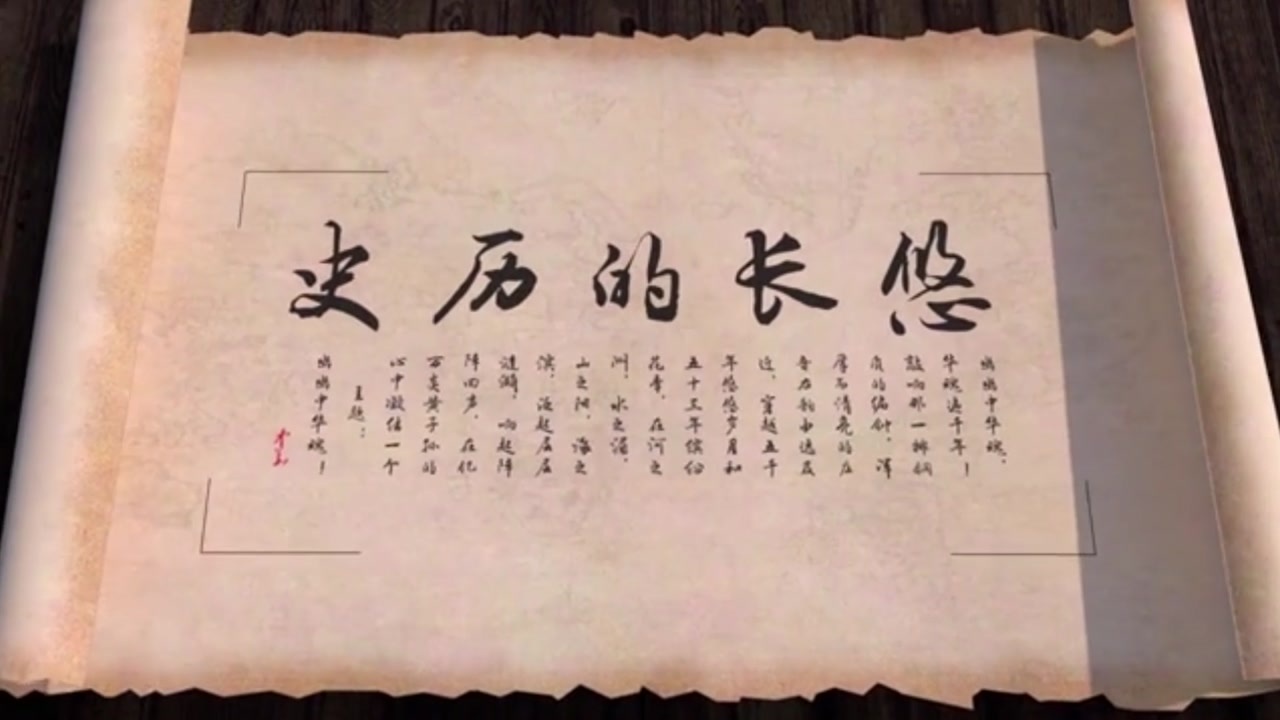 悠长的历史
幽幽中华魂，
华魂千年！
敲响那一排铜
质的编钟，浑
厚而清亮的左
音右韵由远及
近，穿越五千
年悠悠岁月和
五十三年缤纷
花季，在河之
洲，水之湄，
山之阳，海之
滨，泛起层层
涟漪，响起阵
阵回声，在亿
万炎黄子孙的
心中凝结一个
主题：
幽幽中华魂！